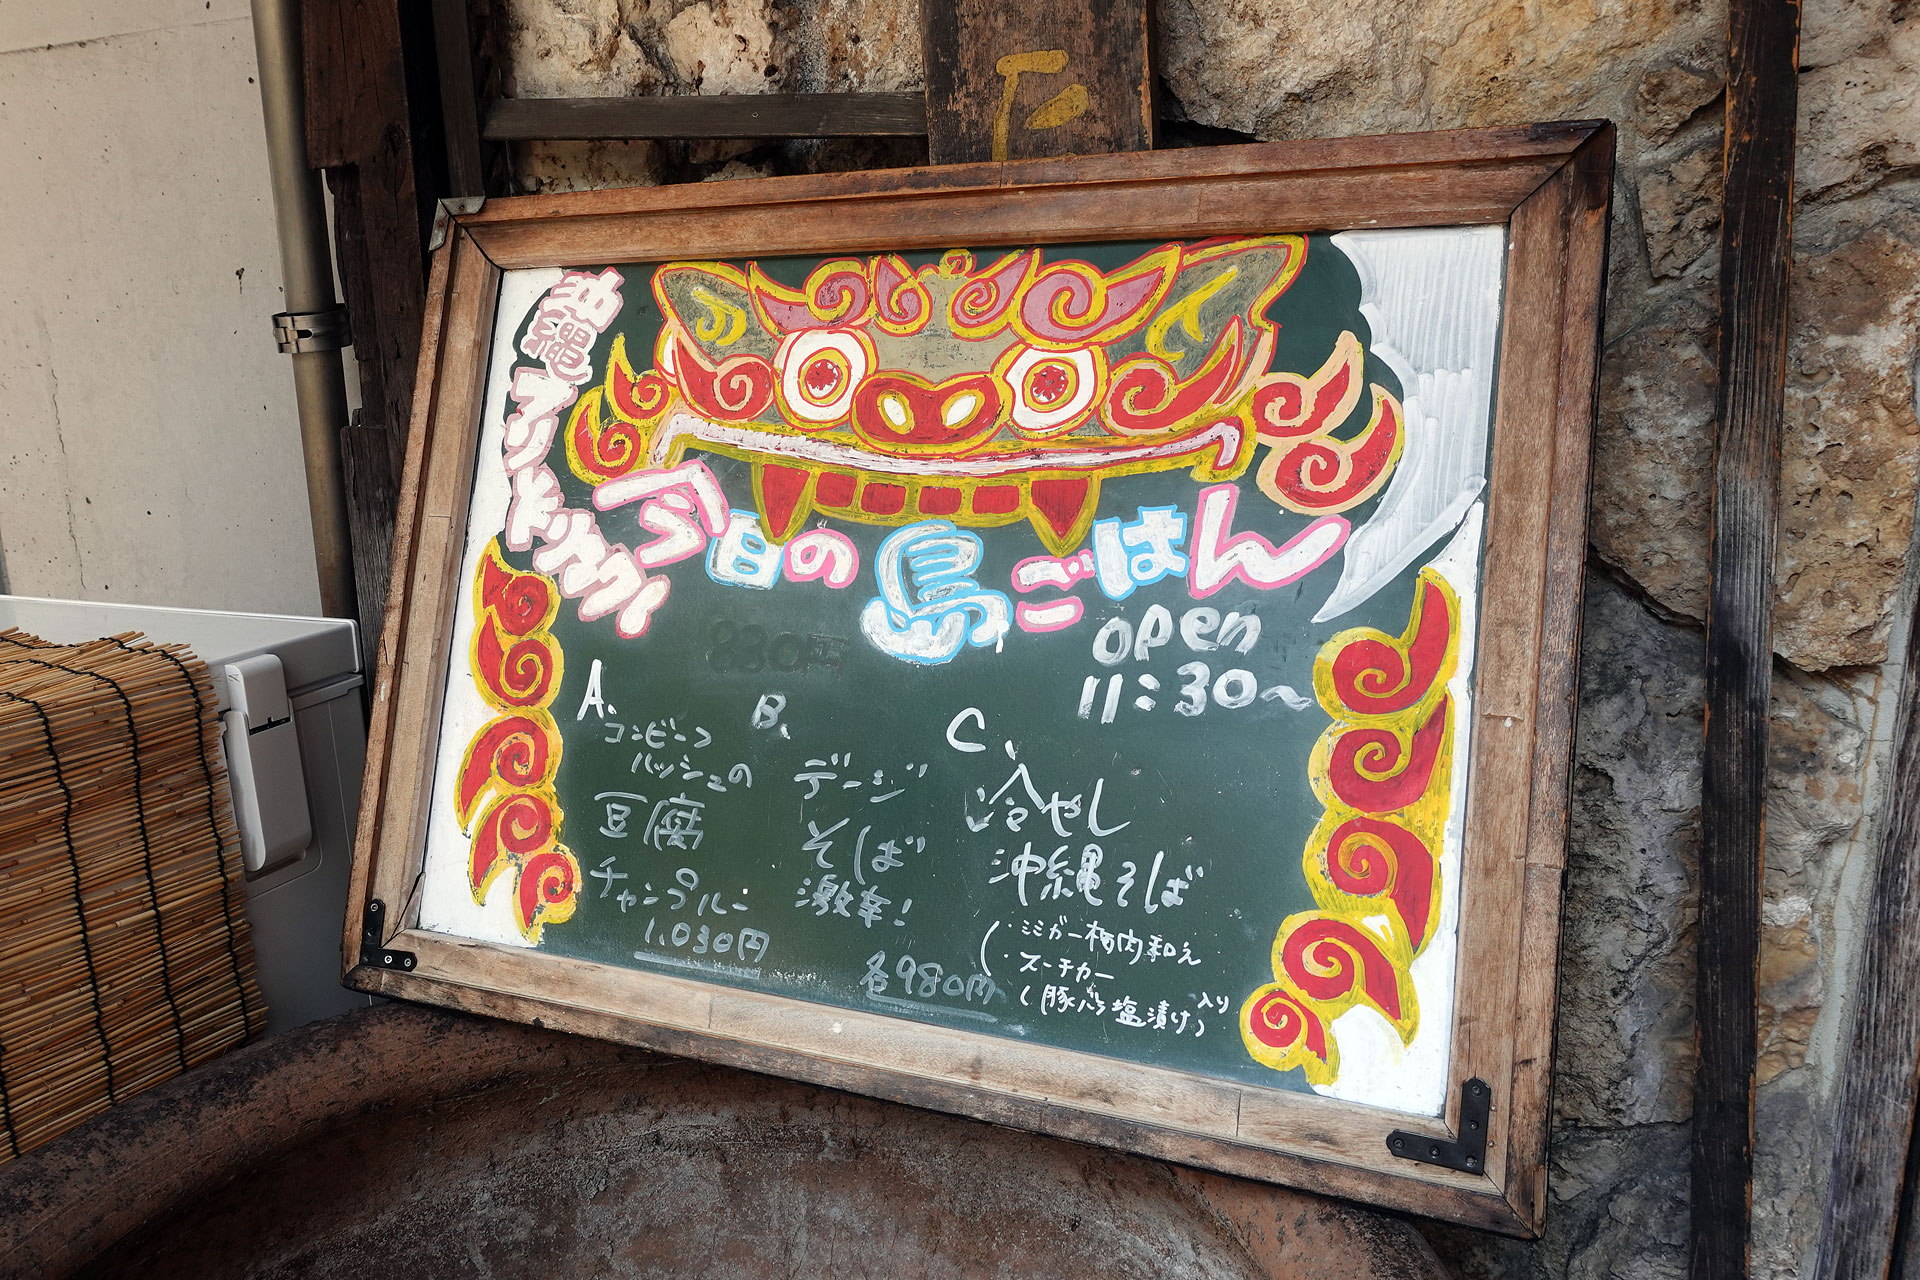 沖縄
今日の島ごはん
open
11:30〜
A.
コンビーフ
ハッシュの
豆腐
チャンプルー
1,030円
B、
デージ
そば
激辛!
各980円
C、
冷やし
沖縄そば
(・ミミガー梅肉和え
・スーチカー
(豚バラ塩漬け)入り
830円